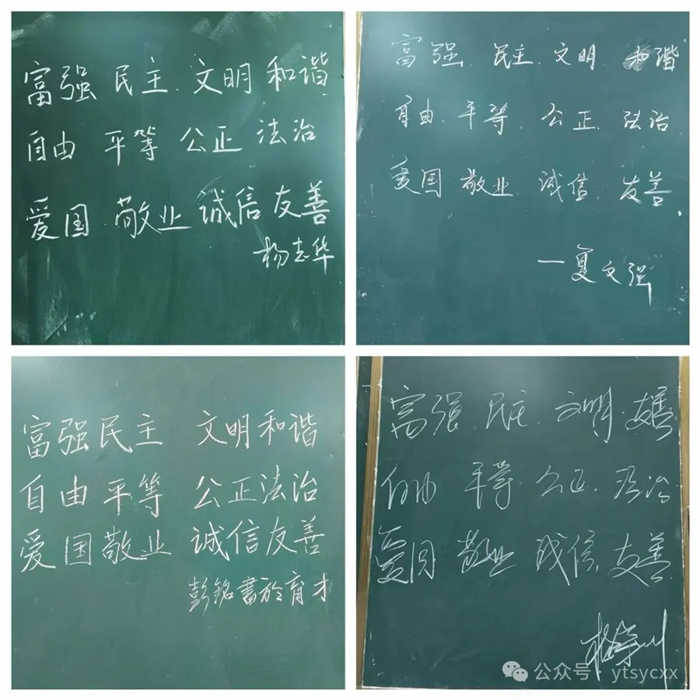 富强 民主 文明 和谐
自由 平等 公正 法治
爱国 敬业 诚信 友善
杨志华
富强 民主 文明 和谐
自由 平等 公正 法治
爱国 敬业 诚信 友善
一夏文强
富强民主 文明和谐
自由平等 公正法治
爱国敬业 诚信友善
彭铭書於育才
富强 民主 文明
自由 平等 公正 法治
爱国 敬业 诚信 友善
公众号·ytsycxx